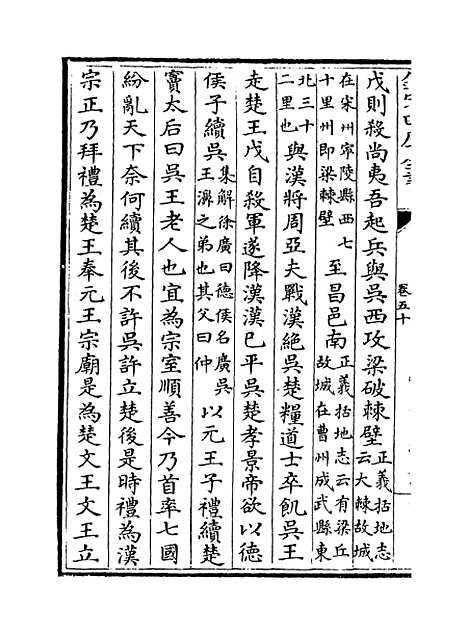 卷五十
戊則殺尚夷吾起兵與吳西攻梁破棘壁正義括地志云大棘故城
在宋州寧陵縣西七十里州即梁棘壁至昌邑南正義括地志云有梁丘故城在曹州成武縣東
北三十二里也與漢將周亞夫戰漢絕吳楚糧道士卒飢吳王
走楚王戊自殺軍遂降漢漢已平吳楚孝景帝欲以德
侯子續吳集解徐廣曰德侯名廣吳王濞之弟也其父曰仲以元王子禮續楚
竇太后曰吳王老人也宜為宗室順善今乃首率七國
紛亂天下奈何續其後不許吳許立楚後是時禮為漢
宗正乃拜禮為楚王奉元王宗廟是為楚文王文王立